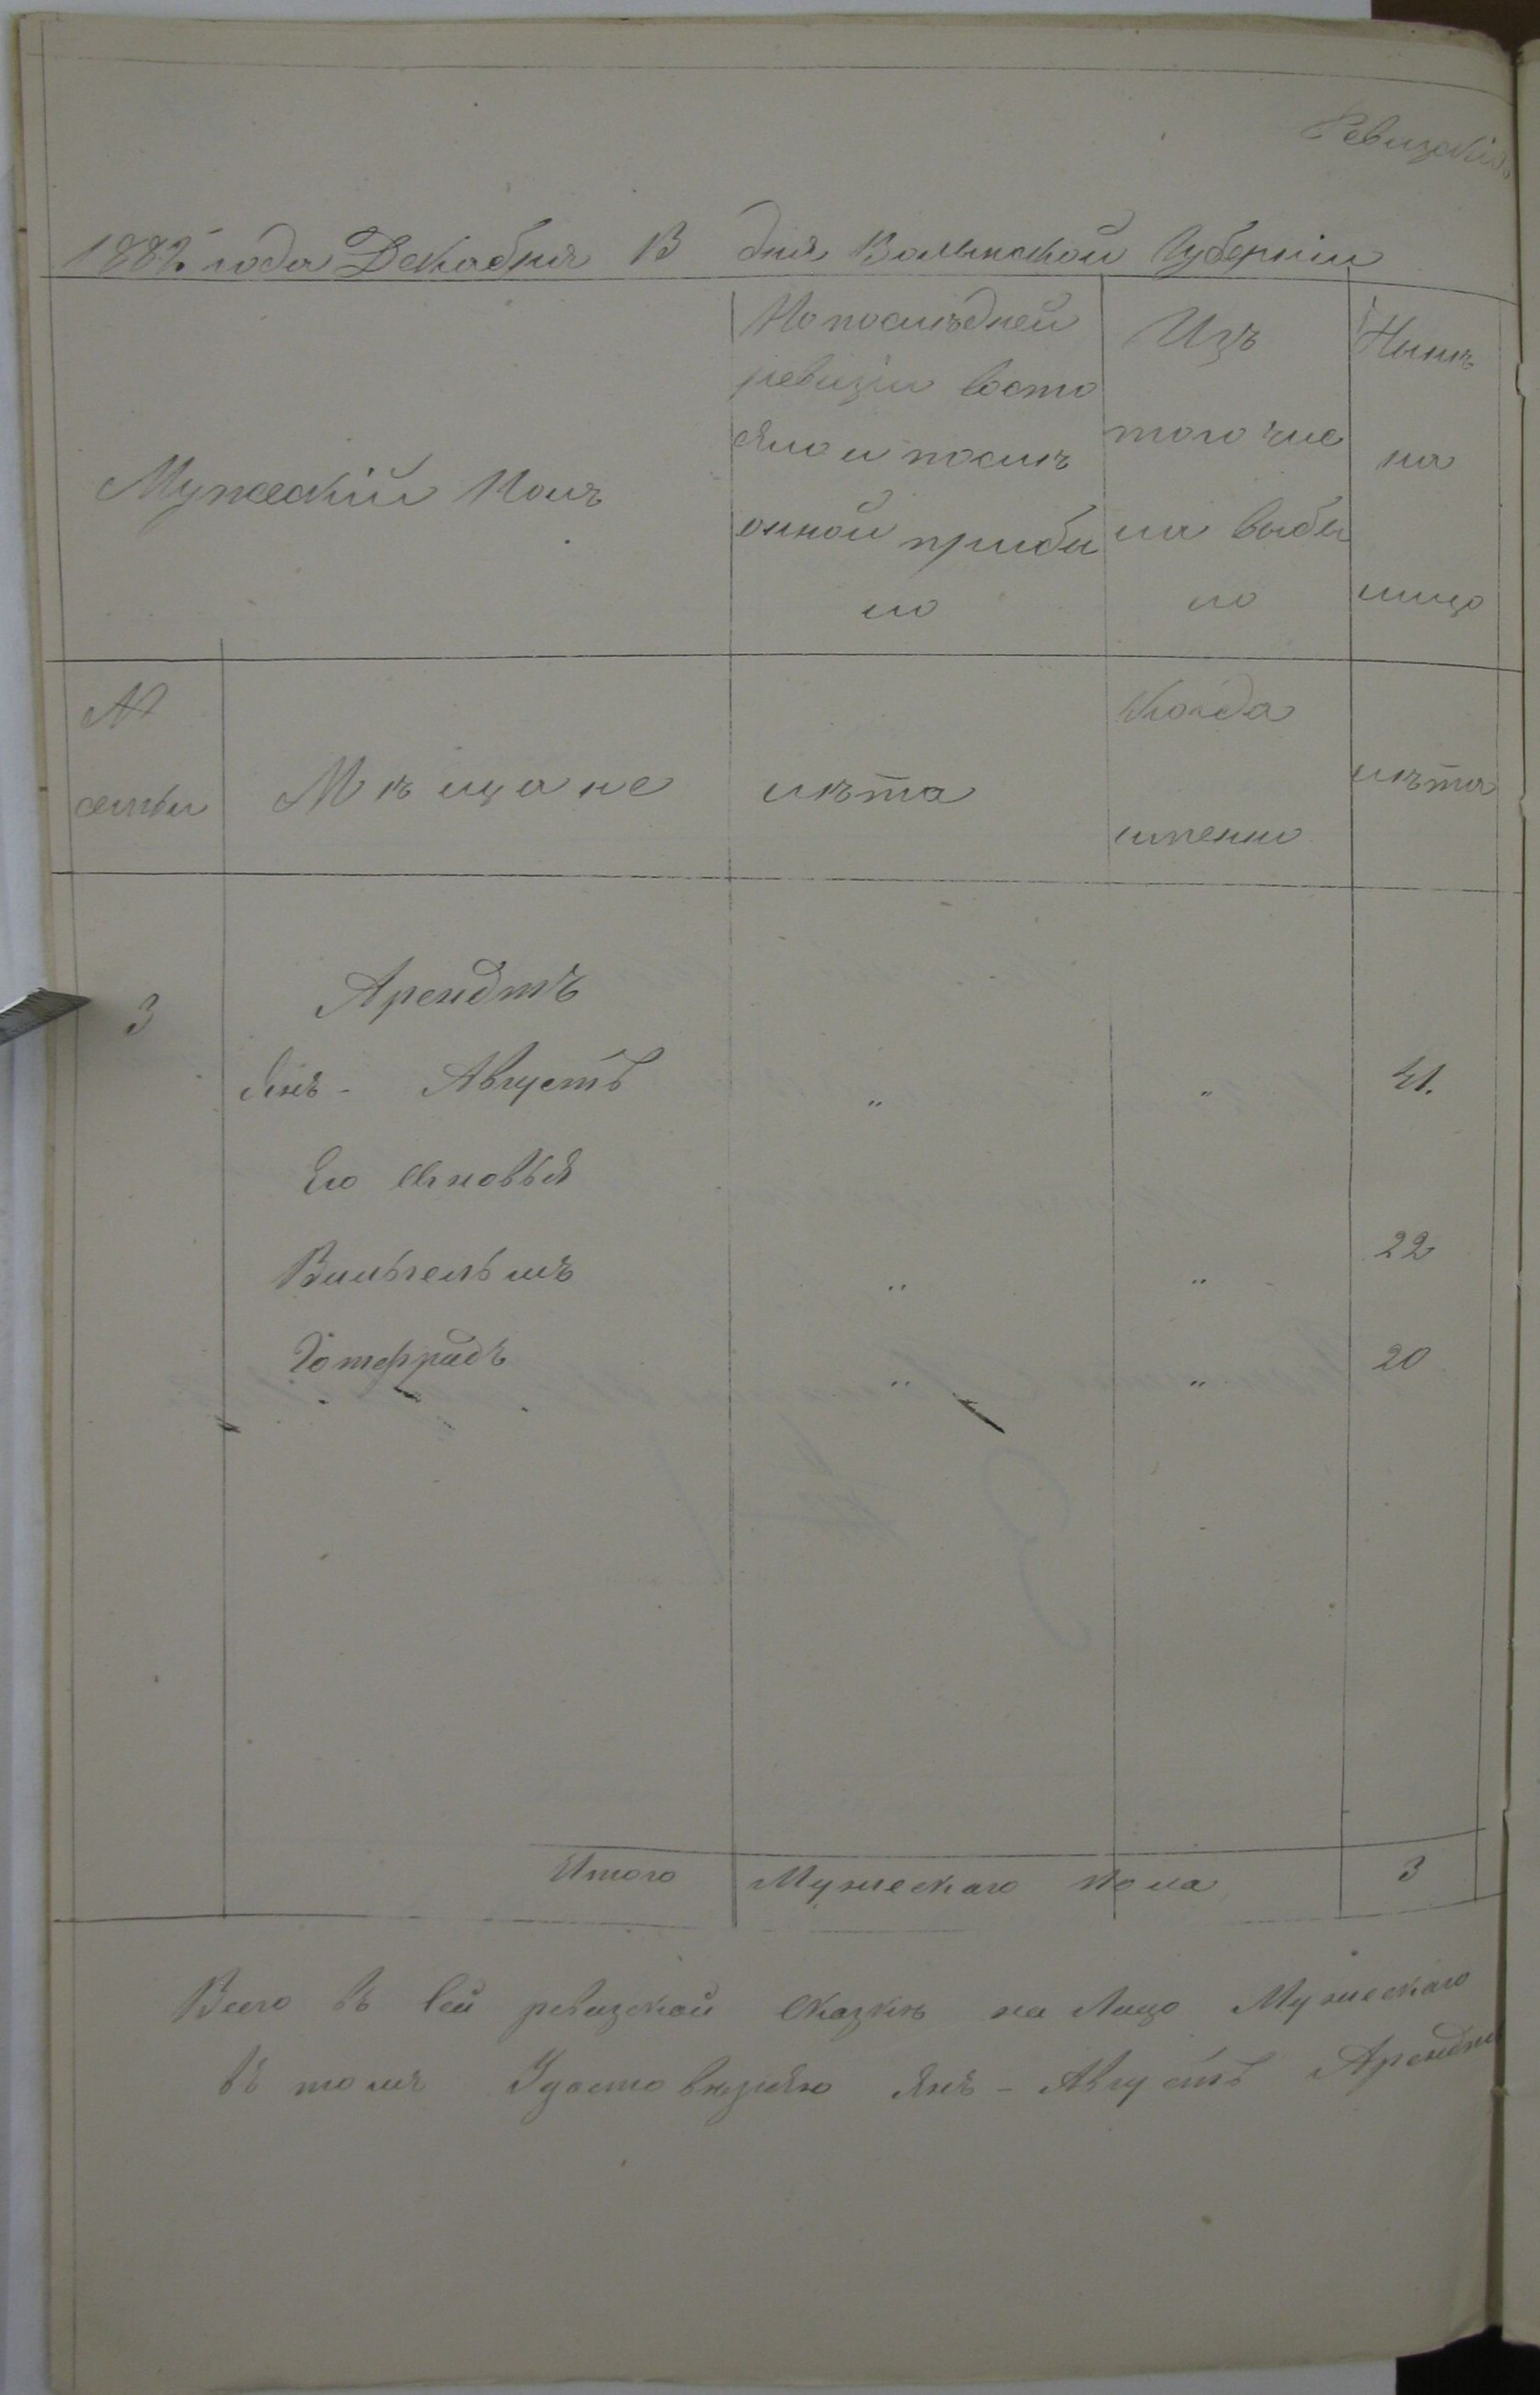 Ревизскія
1882 года Декабря 13 дня Волынской Губерніи
Мужескій Полъ
По послѣдней
ревизіи состо
яло и послѣ
оной прибы
ло
Изъ
того чис
ла выбы
ло
Нынѣ
на
лицо
№
семьи
Мѣщане
лѣта
Когда
именно
лѣта
3 Арендтъ
Янъ - Августъ " " 41.
Его сыновья
Вильгельмъ " " 22
Готфридъ " " 20
Итого Мужескаго пола 3
Всего въ сей ревизской сказкѣ на лицо Мужескаго
въ томъ Удостовѣряю Янъ - Августъ Арендтъ